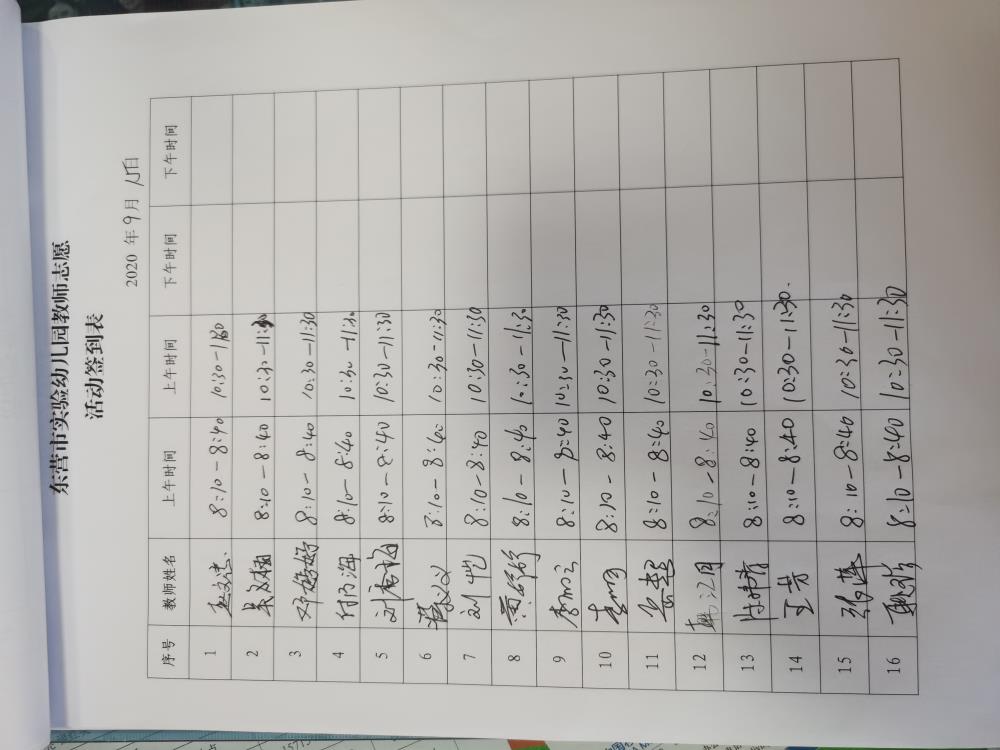 东营市实验幼儿园教师志愿
活动签到表
2020 年 9 月 15日
序号 教师姓名 上午时间 上午时间 下午时间 下午时间
1 8:10-8:40 10:30-11:30
2 8:10-8:40 10:30-11:30
3 邓婷婷 8:10-8:40 10:30-11:30
4 8:10-8:40 10:30-11:30
5 8:10-8:40 10:30-11:30
6 8:10-8:40 10:30-11:30
7 刘恺 8:10-8:40 10:30-11:30
8 8:10-8:40 10:30-11:30
9 8:10-8:40 10:30-11:30
10 8:10-8:40 10:30-11:30
11 8:10-8:40 10:30-11:30
12 韩江月 8:10-8:40 10:30-11:30
13 8:10-8:40 10:30-11:30
14 王芳 8:10-8:40 10:30-11:30.
15 张萍 8:10-8:40 10:30-11:30
16 8:10-8:40 10:30-11:30